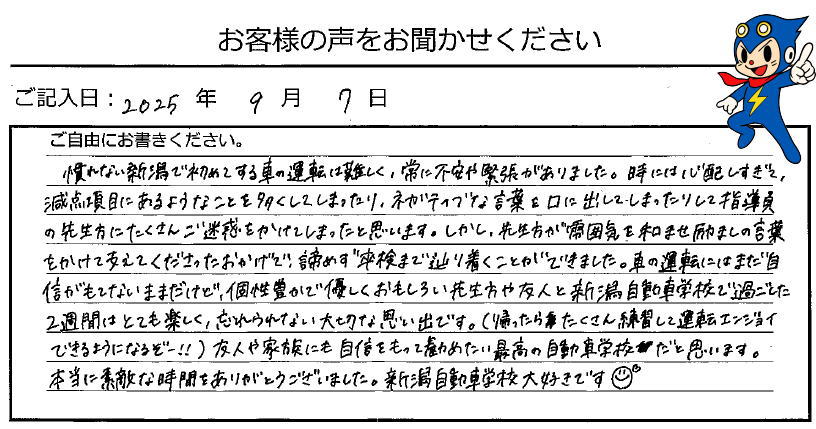 お客様の声をお聞かせください
ご記入日：2025 年 9 月 7 日
ご自由にお書きください。
慣れない新潟で初めてする車の運転は難しく、常に不安や緊張がありました。時には心配しすぎて、
減点項目にあるようなことを多くしてしまったり、ネガティブな言葉を口に出してしまったりして指導員
の先生方にたくさんご迷惑をかけてしまったと思います。しかし、先生方が雰囲気を和ませ励ましの言葉
をかけて支えてくださったおかげで、諦めず卒検まで辿り着くことができました。車の運転にはまだ自
信がもてないままだけど、個性豊かで優しくおもしろい先生方や友人と新潟自動車学校で過ごした
2週間はとても楽しく、忘れられない大切な思い出です。（帰ったらたくさん練習して運転エンジョイ
できるようになるぞー!!）友人や家族にも自信をもって勧めたい最高の自動車学校だと思います。
本当に素敵な時間をありがとうございました。新潟自動車学校大好きです